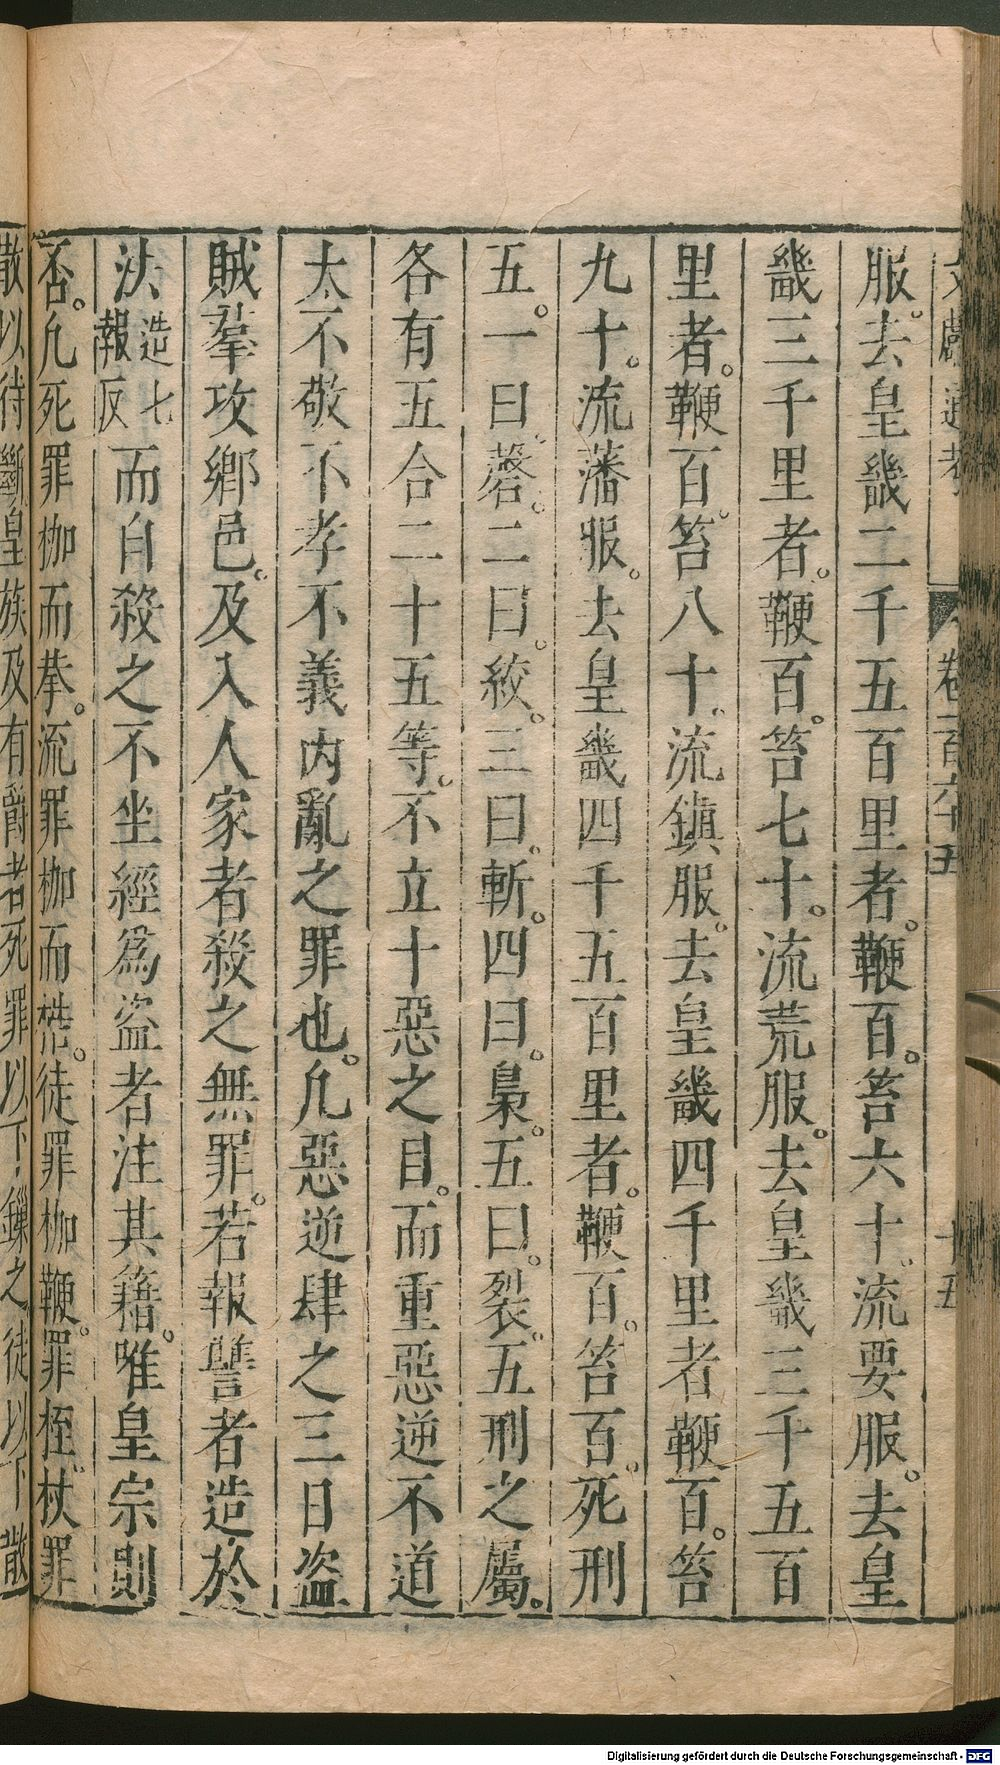 文獻通考 卷一百六十五 十五
服。去皇畿二千五百里者。鞭百。笞六十。流要服。去皇
畿三千里者。鞭百。笞七十。流荒服。去皇畿三千五百
里者。鞭百。笞八十。流鎮服。去皇畿四千里者鞭百。笞
九十。流藩服。去皇畿四千五百里者。鞭百。笞百。死刑
五。一曰。磬。二曰。絞。三曰。斬。四曰。梟。五曰。裂。五刑之屬。
各有五合二十五等。不立十惡之目。而重惡逆不道
大不敬不孝不義內亂之罪也。凡惡逆肆之三日盜
賊羣攻鄉邑。及入人家者殺之無罪。若報讐者造於
法造七報反而自殺之不坐經爲盜者注其籍。唯皇宗則
否。凡死罪枷而拲。流罪枷而梏。徒罪枷鞭。罪桎。杖罪
散以待斷皇族及有爵者死罪以下鏁之徒以下散
Digitalisierung gefördert durch die Deutsche Forschungsgemeinschaft - DFG